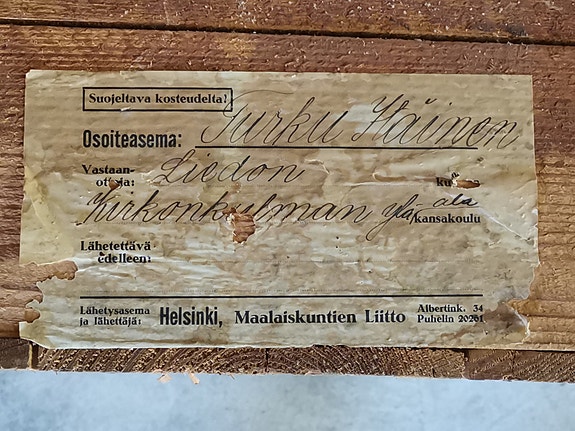 Suojeltava kosteudelta!
Osoiteasema: Turku Itäinen
Vastaan-
ottaja: Liedon
Kirkonkulman ylä- ala
/kansakoulu
Lähetettävä
edelleen:
Lähetysasema
ja lähettäjä: Helsinki, Maalaiskuntien Liitto Albertink. 34
Puhelin 20261